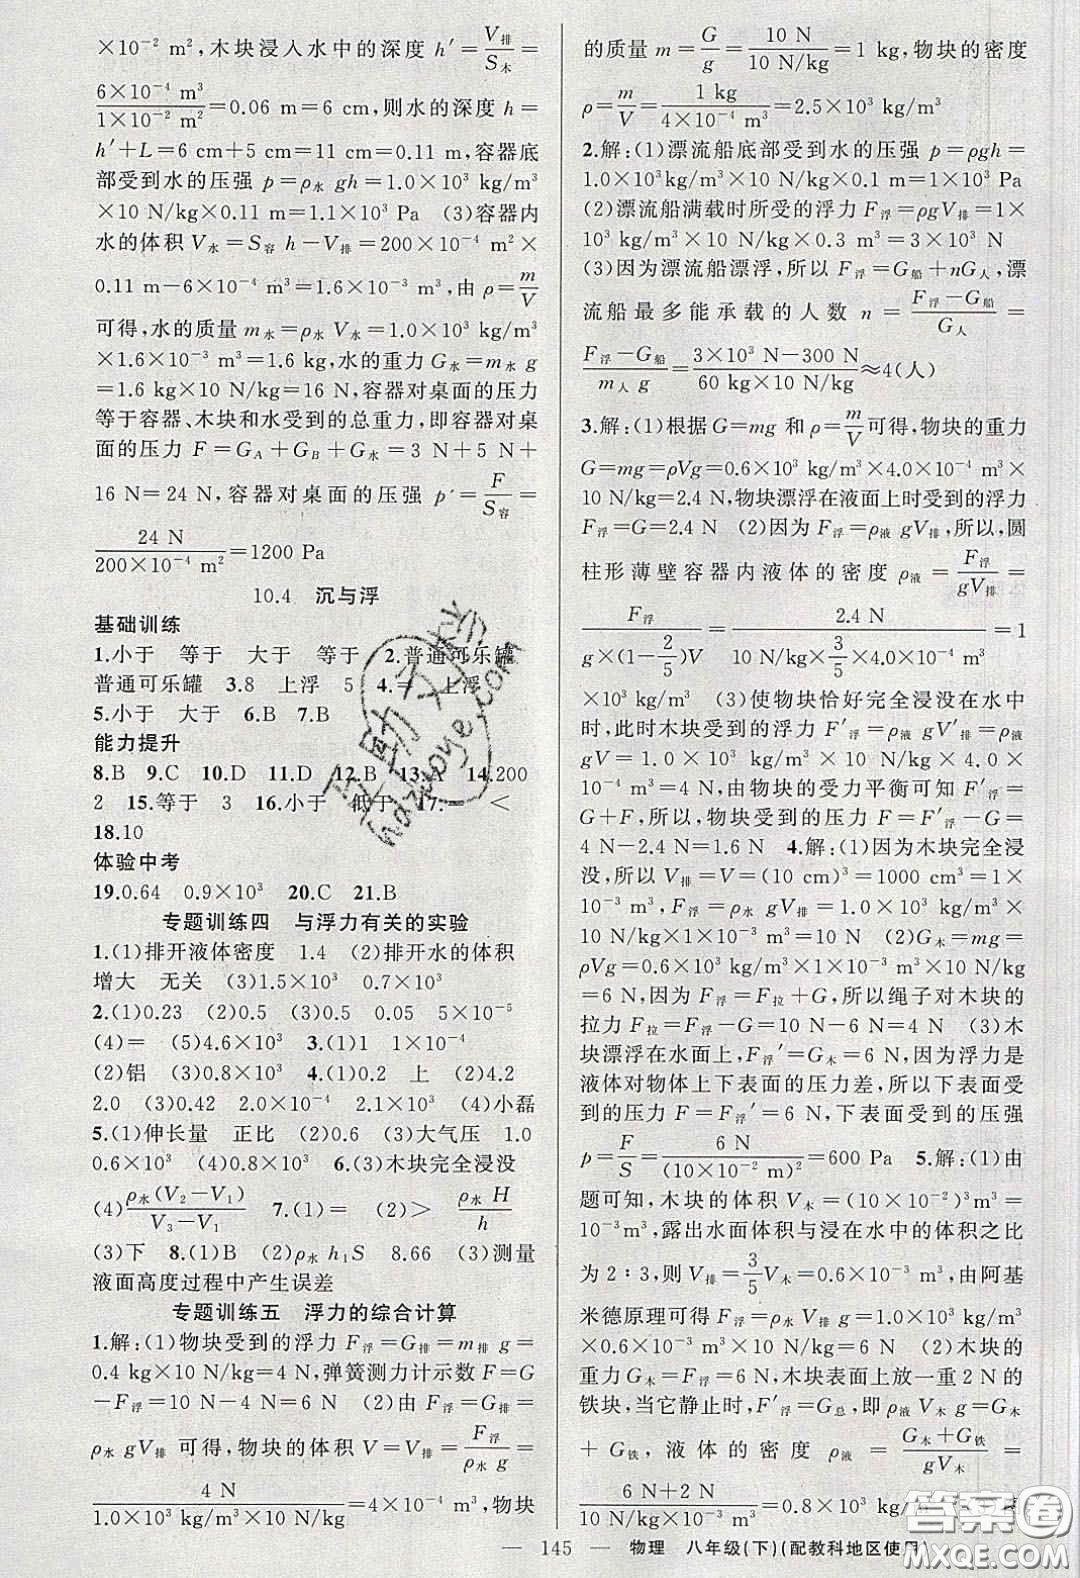 ×10⁻² m²,木块浸入水中的深度 h′=V排/S木=
6×10⁻⁴ m³/1×10⁻² m²=0.06 m=6 cm,则水的深度 h=
h′+L=6 cm+5 cm=11 cm=0.11 m,容器底
部受到水的压强 p=ρ水 gh=1.0×10³ kg/m³
×10 N/kg×0.11 m=1.1×10³ Pa (3)容器内
水的体积 V水=S容 h-V排=200×10⁻⁴ m²×
0.11 m-6×10⁻⁴ m³=1.6×10⁻³ m³,由 ρ=m/V
可得,水的质量 m水=ρ水 V水=1.0×10³ kg/m³
×1.6×10⁻³ m³=1.6 kg,水的重力 G水=m水 g
=1.6 kg×10 N/kg=16 N,容器对桌面的压力
等于容器、木块和水受到的总重力,即容器对桌
面的压力 F=GA+GB+G水=3 N+5 N+
16 N=24 N,容器对桌面的压强 p′=F/S容=
24 N/200×10⁻⁴ m²=1200 Pa
10.4 沉与浮
基础训练
1.小于 等于 大于 等于 2.普通可乐罐
普通可乐罐 3.8 上浮 5 4.= 上浮
5.小于 大于 6.B 7.B
能力提升
8.B 9.C 10.D 11.D 12.B 13.A 14.200
2 15.等于 3 16.小于 低于 17. <
18.10
体验中考
19.0.64 0.9×10³ 20.C 21.B
专题训练四 与浮力有关的实验
1.(1)排开液体密度 1.4 (2)排开水的体积
增大 无关 (3)1.5×10³ (4)0.7×10³
2.(1)0.23 (2)0.5 (3)0.5 0.05 5×10⁻⁵
(4)= (5)4.6×10³ 3.(1)1 1×10⁻⁴
(2)铝 (3)0.8×10³ 4.(1)0.2 上 (2)4.2
2.0 (3)0.42 2.0×10⁻⁴ 2.1×10³ (4)小磊
5.(1)伸长量 正比 (2)0.6 (3)大气压 1.0
0.6×10³ (4)0.8×10³ 6.(3)木块完全浸没
(4)ρ水(V₂-V₁)/V₃-V₁ 7.(1)= (2)> ρ水 H/h
(3)下 8.(1)B (2)ρ水 h₁S 8.66 (3)测量
液面高度过程中产生误差
专题训练五 浮力的综合计算
1.解:(1)物块受到的浮力 F浮=G排=m排 g=
0.4 kg×10 N/kg=4 N,弹簧测力计示数 F=G
-F浮=10 N-4 N=6 N (2)由 F浮=G排=
ρ水 gV排 可得,物块的体积 V=V排=F浮/ρ水 g=
4 N/1.0×10³ kg/m³×10 N/kg=4×10⁻⁴ m³,物块
的质量 m=G/g=10 N/10 N/kg=1 kg,物块的密度
ρ=m/V=1 kg/4×10⁻⁴ m³=2.5×10³ kg/m³
2.解:(1)漂流船底部受到水的压强 p=ρgh=
1.0×10³ kg/m³×10 N/kg×0.1 m=1×10³ Pa
(2)漂流船满载时所受的浮力 F浮=ρgV排=1×
10³ kg/m³×10 N/kg×0.3 m³=3×10³ N
(3)因为漂流船漂浮,所以 F浮=G船+nG人,漂
流船最多能承载的人数 n=F浮-G船/G人=
F浮-G船/m人 g=3×10³ N-300 N/60 kg×10 N/kg≈4(人)
3.解:(1)根据 G=mg 和 ρ=m/V可得,物块的重力
G=mg=ρVg=0.6×10³ kg/m³×4.0×10⁻⁴ m³×
10 N/kg=2.4 N,物块漂浮在液面上时受到的浮力
F浮=G=2.4 N (2)因为 F浮=ρ液 gV排,所以,圆
柱形薄壁容器内液体的密度 ρ液=F浮/gV排=
F浮/g×(1-2/5)V=2.4 N/10 N/kg×3/5×4.0×10⁻⁴ m³=1
×10³ kg/m³ (3)使物块恰好完全浸没在水中
时,此时木块受到的浮力 F′浮=ρ液 gV′排=ρ液
gV=1.0×10³ kg/m³×10 N/kg×4.0×
10⁻⁴ m³=4 N,由物块的受力平衡可知 F′浮=
G+F,所以,物块受到的压力 F=F′浮-G=
4 N-2.4 N=1.6 N 4.解:(1)因为木块完全浸
没,所以 V排=V=(10 cm)³=1000 cm³=1×
10⁻³ m³,F浮=ρ水 gV排=1.0×10³ kg/m³×
10 N/kg×1×10⁻³ m³=10 N (2)G木=mg=
ρVg=0.6×10³ kg/m³×1×10⁻³ m³×10 N/kg
=6 N,因为 F浮=F拉+G,所以绳子对木块的
拉力 F拉=F浮-G=10 N-6 N=4 N (3)木
块漂浮在水面上,F浮′=G木=6 N,因为浮力是
液体对物体上下表面的压力差,所以下表面受
到的压力 F=F浮′=6 N,下表面受到的压强
p=F/S=6 N/(10×10⁻² m)²=600 Pa 5.解:(1)由
题可知,木块的体积 V木=(10×10⁻²)³m³=
10⁻³m³,露出水面体积与浸在水中的体积之比
为 2∶3,则 V排=3/5V木=0.6×10⁻³ m³,由阿基
米德原理可得 F浮=ρ水 V排 g=1.0×10³ kg/m³
×0.6×10⁻³ m³×10 N/kg=6 N (2)木块的
重力 G木=F浮=6 N,木块表面上放一重 2 N 的
铁块,当它静止时,F′浮=G总,即 ρ液 V木 g=G木
+G铁,液体的密度 ρ液=G木+G铁/gV木=
6 N+2 N/10 N/kg×10⁻³ m³=0.8×10³ kg/m³
— 145 — 物理 八年级(下)(配教科地区使用)
答案圈